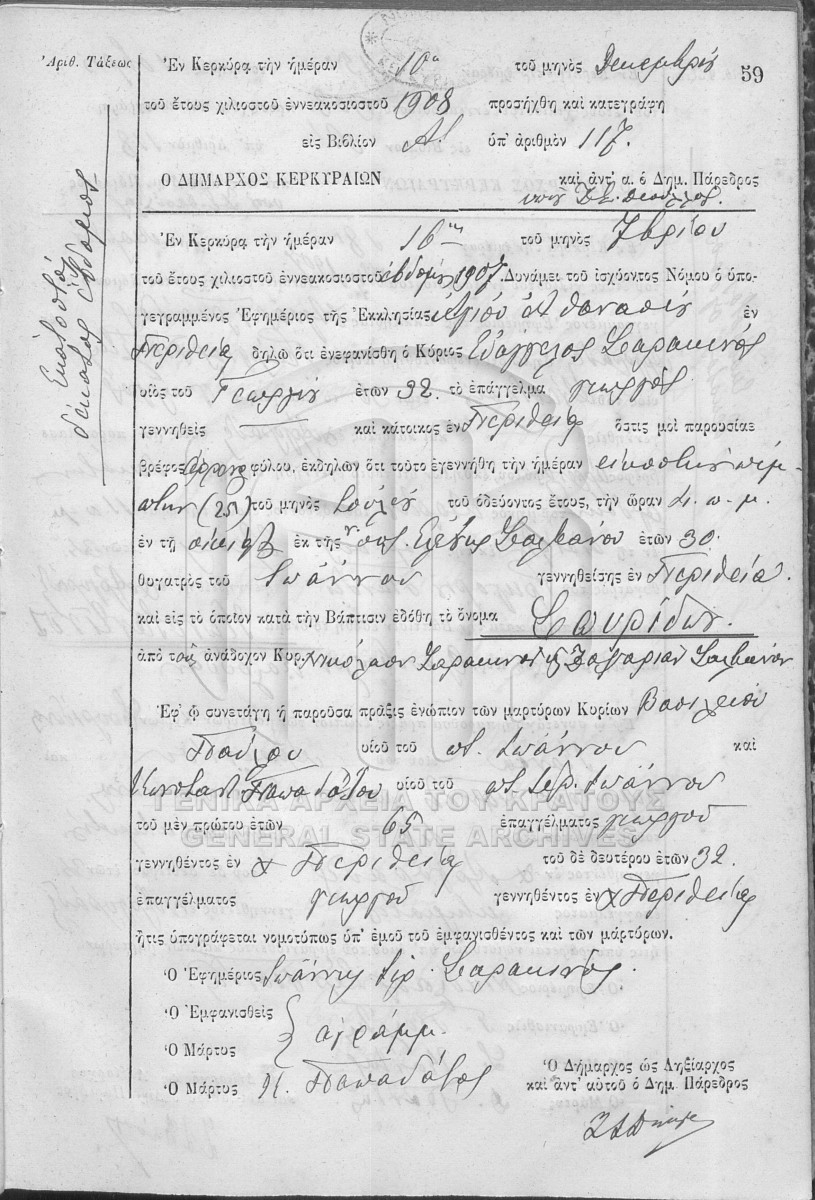 59
Ἀριθ. Τάξεως
Ἑκατοστὸς
δέκατος ἕβδομος
Ἐν Κερκύρᾳ τὴν ἡμέραν 10η τοῦ μηνὸς Δεκεμβρίου
τοῦ ἔτους χιλιοστοῦ ἐννεακοσιοστοῦ 1908 προσήχθη καὶ κατεγράφη
εἰς Βιβλίον Α! ὑπ' ἀριθμὸν 117.
Ὁ ΔΗΜΑΡΧΟΣ ΚΕΡΚΥΡΑΙΩΝ καὶ ἀντ' α. ὁ Δημ. Πάρεδρος
Ἐν Κερκύρᾳ τὴν ἡμέραν 16ην τοῦ μηνὸς 7βρίου
τοῦ ἔτους χιλιοστοῦ ἐννεακοσιοστοῦ ἑβδόμου 1907. Δυνάμει τοῦ ἰσχύοντος Νόμου ὁ ὑπο-
γεγραμμένος Ἐφημέριος τῆς Ἐκκλησίας Ἁγίου Ἀθανασίου ἐν
Περιθείᾳ δηλῶ ὅτι ἐνεφανίσθη ὁ Κύριος Εὐάγγελος Σαρακινὸς
υἱὸς τοῦ Γεωργίου ἐτῶν 32. τὸ ἐπάγγελμα γεωργὸς
γεννηθεὶς καὶ κάτοικος ἐν Περιθείᾳ ὅστις μοὶ παρουσίασε
βρέφος ἄρρενος φύλου, ἐκδηλῶν ὅτι τοῦτο ἐγεννήθη τὴν ἡμέραν εἰκοστὴν πέμ-
πτην (25) τοῦ μηνὸς Ἰουλίου τοῦ ὁδεύοντος ἔτους, τὴν ὥραν 4. π. μ.
ἐν τῇ οἰκίᾳ ἐκ τῆς Ἑλένης Σαλβάνου ἐτῶν 30.
θυγατρὸς τοῦ Ἰωάννου γεννηθείσης ἐν Περιθείᾳ.
καὶ εἰς τὸ ὁποῖον κατὰ τὴν Βάπτισιν ἐδόθη τὸ ὄνομα Σπυρίδων.
ἀπὸ τοὺς ἀνάδοχον Κυρ. Νικόλαον Σαρακινὸν Σαλβάνον
Ἐφ' ᾧ συνετάγη ἡ παροῦσα πρᾶξις ἐνώπιον τῶν μαρτύρων Κυρίων Βασιλείου
Παύλου υἱοῦ τοῦ ποτ. Ἰωάννου καὶ
Κωνσταντ. Παπαδάτου υἱοῦ τοῦ ποτ. Ἰερ. Ἰωάννου
ΓΕΝΙΚΑ ΑΡΧΕΙΑ ΤΟΥ ΚΡΑΤΟΥΣ
τοῦ μὲν πρώτου ἐτῶν 65 ἐπαγγέλματος γεωργοῦ
GENERAL STATE ARCHIVES
γεννηθέντος ἐν Περιθείᾳ τοῦ δὲ δευτέρου ἐτῶν 32.
ἐπαγγέλματος γεωργοῦ γεννηθέντος ἐν Περιθείᾳ
ἥτις ὑπογράφεται νομοτύπως ὑπ' ἐμοῦ τοῦ ἐμφανισθέντος καὶ τῶν μάρτύρων.
Ὁ Ἐφημέριος Ἰωάννης Ἱερ. Σαρακινός.
Ὁ Ἐμφανισθεὶς
ἀγράμμ.
Ὁ Μάρτυς
Ὁ Μάρτυς Κ. Παπαδάτος
Ὁ Δήμαρχος ὡς Ληξίαρχος
καὶ ἀντ' αὐτοῦ ὁ Δημ. Πάρεδρος